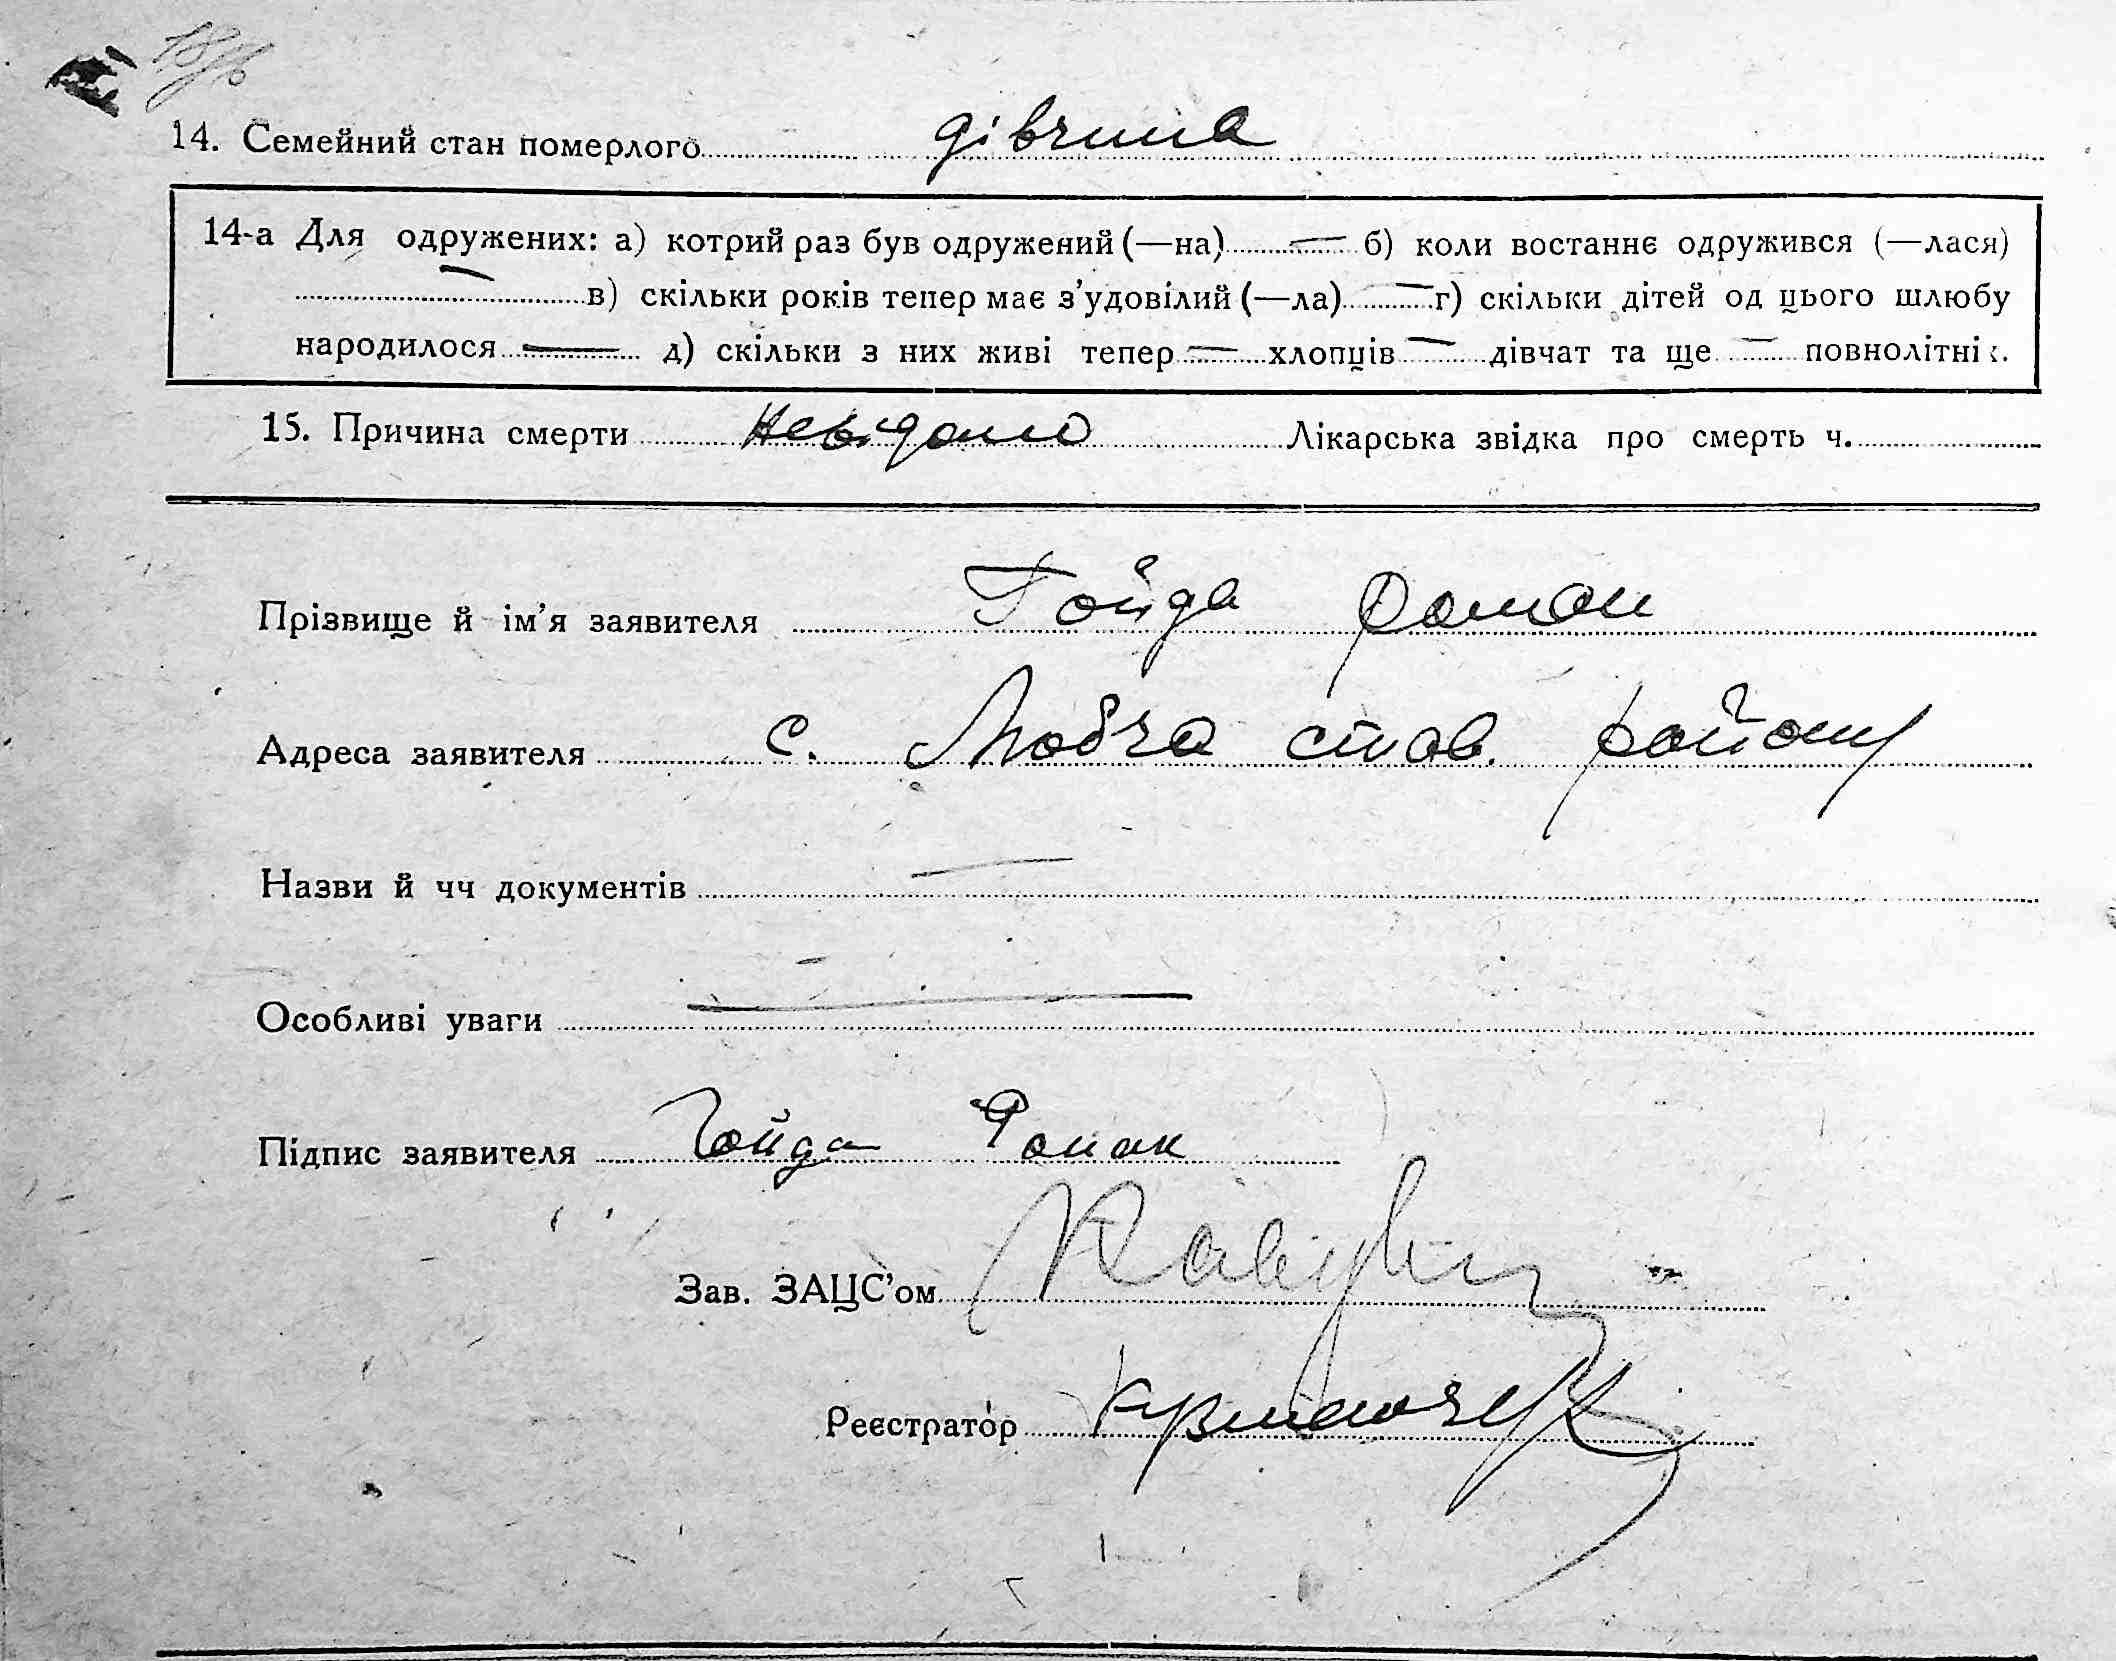 14. Семейний стан померлого дівчина
14-а Для одружених: а) котрий раз був одружений (—на) — б) коли востаннє одружився (—лася)
— в) скільки років тепер має з’удовілий (—ла) — г) скільки дітей од цього шлюбу
народилося — д) скільки з них живі тепер — хлопців — дівчат та ще — повнолітніх.
15. Причина смерти невідомо Лікарська звідка про смерть ч.
Прізвище й ім’я заявителя Гойда Роман
Адреса заявителя с. Любча став. району
Назви й чч документів —
Особливі уваги —
Підпис заявителя Гойда Роман
Зав. ЗАЦС’ом
Реєстратор